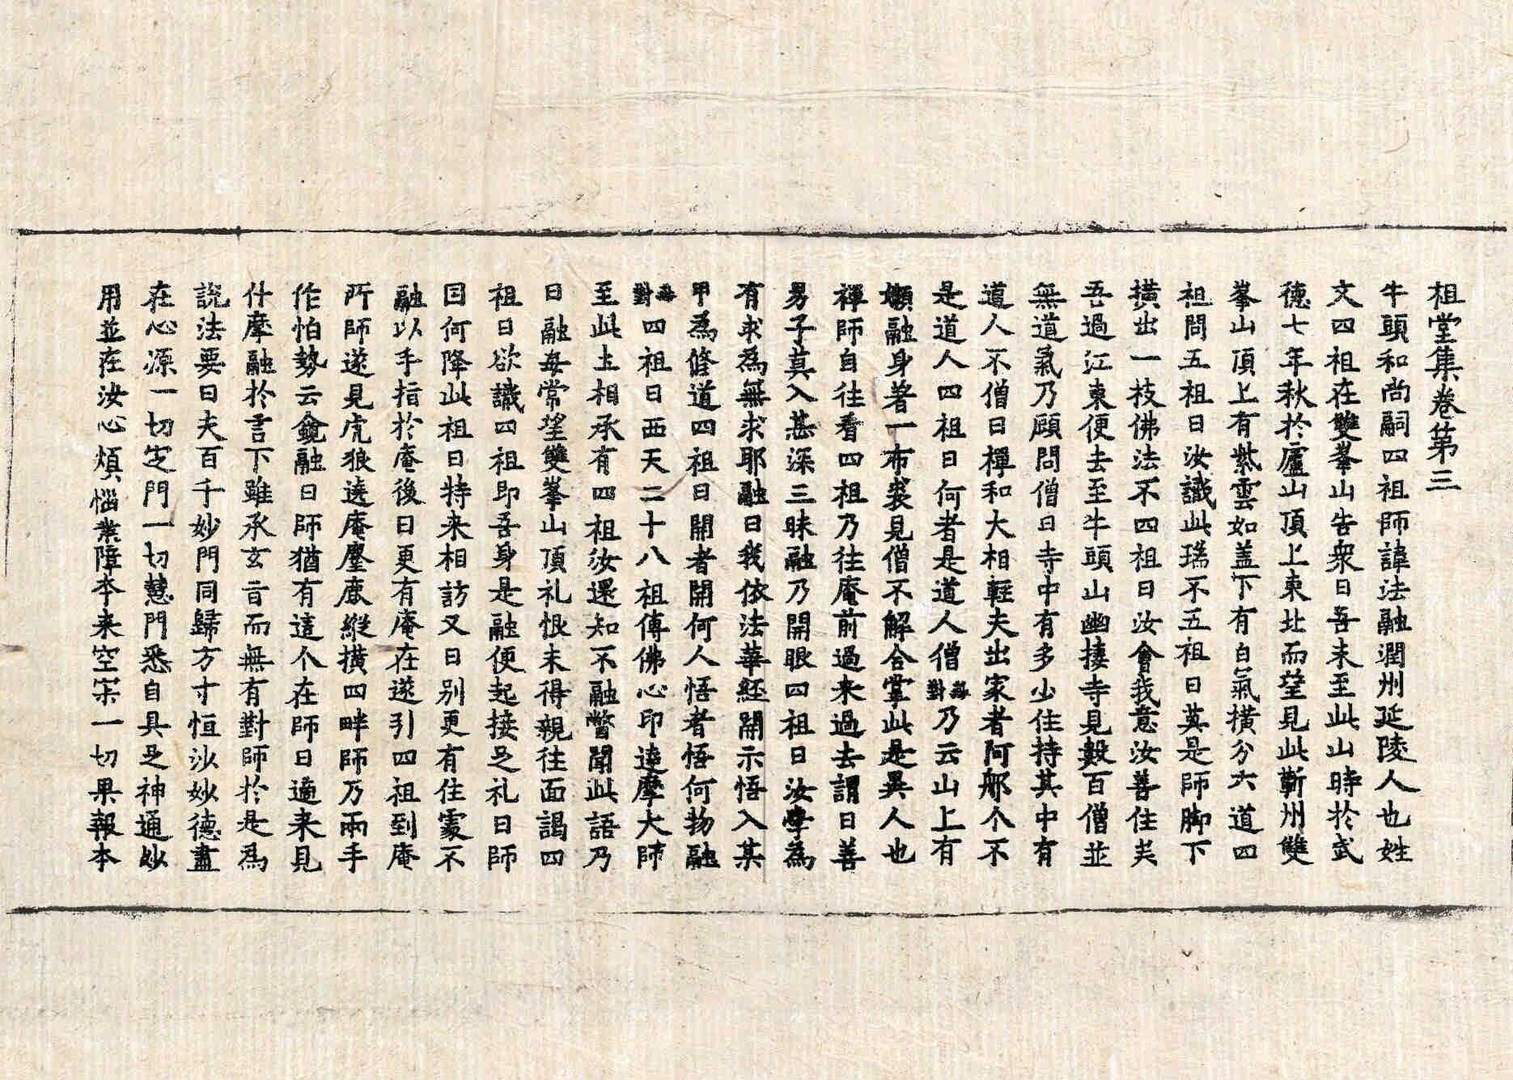 祖堂集卷第三
牛頭和尚嗣四祖師諱法融潤州延陵人也姓
文四祖在雙峯山告衆曰吾未至此山時於武
德七年秋於廬山頂上東北而望見此蘄州雙
峯山頂上有紫雲如盖下有白氣橫分六道四
祖問五祖曰汝識此瑞不五祖曰莫是師脚下
橫出一枝佛法不四祖曰汝會我意汝善住矣
吾過江東便去至牛頭山幽捿寺見數百僧並
無道氣乃顧問僧曰寺中有多少住持其中有
道人不僧曰禪和大相輕夫出家者阿那个不
是道人四祖曰何者是道人僧無對乃云山上有
嬾融身著一布裘見僧不解合掌此是異人也
禪師自往看四祖乃往庵前過来過去謂曰善
男子莫入甚深三昧融乃開眼四祖曰汝學為
有求為無求耶融曰我依法華經開示悟入某
甲為修道四祖曰開者開何人悟者悟何物融
無對四祖曰西天二十八祖傳佛心印達摩大師
至此土相承有四祖汝還知不融瞥聞此語乃
曰融每常望雙峯山頂礼恨未得親往面謁四
祖曰欲識四祖即吾身是融便起接足礼曰師
因何降此祖曰特来相訪又曰別更有住處不
融以手指於庵後曰更有庵在遂引四祖到庵
所師遂見虎狼遶庵麈鹿縱橫四畔師乃兩手
作怕勢云㘕融曰師猶有這个在師曰適来見
什摩融於言下雖承玄旨而無有對師於是為
說法要曰夫百千妙門同歸方寸恒沙妙德盡
在心源一切定門一切慧門悉自具足神通妙
用並在汝心煩惱業障夲来空寂一切果報夲